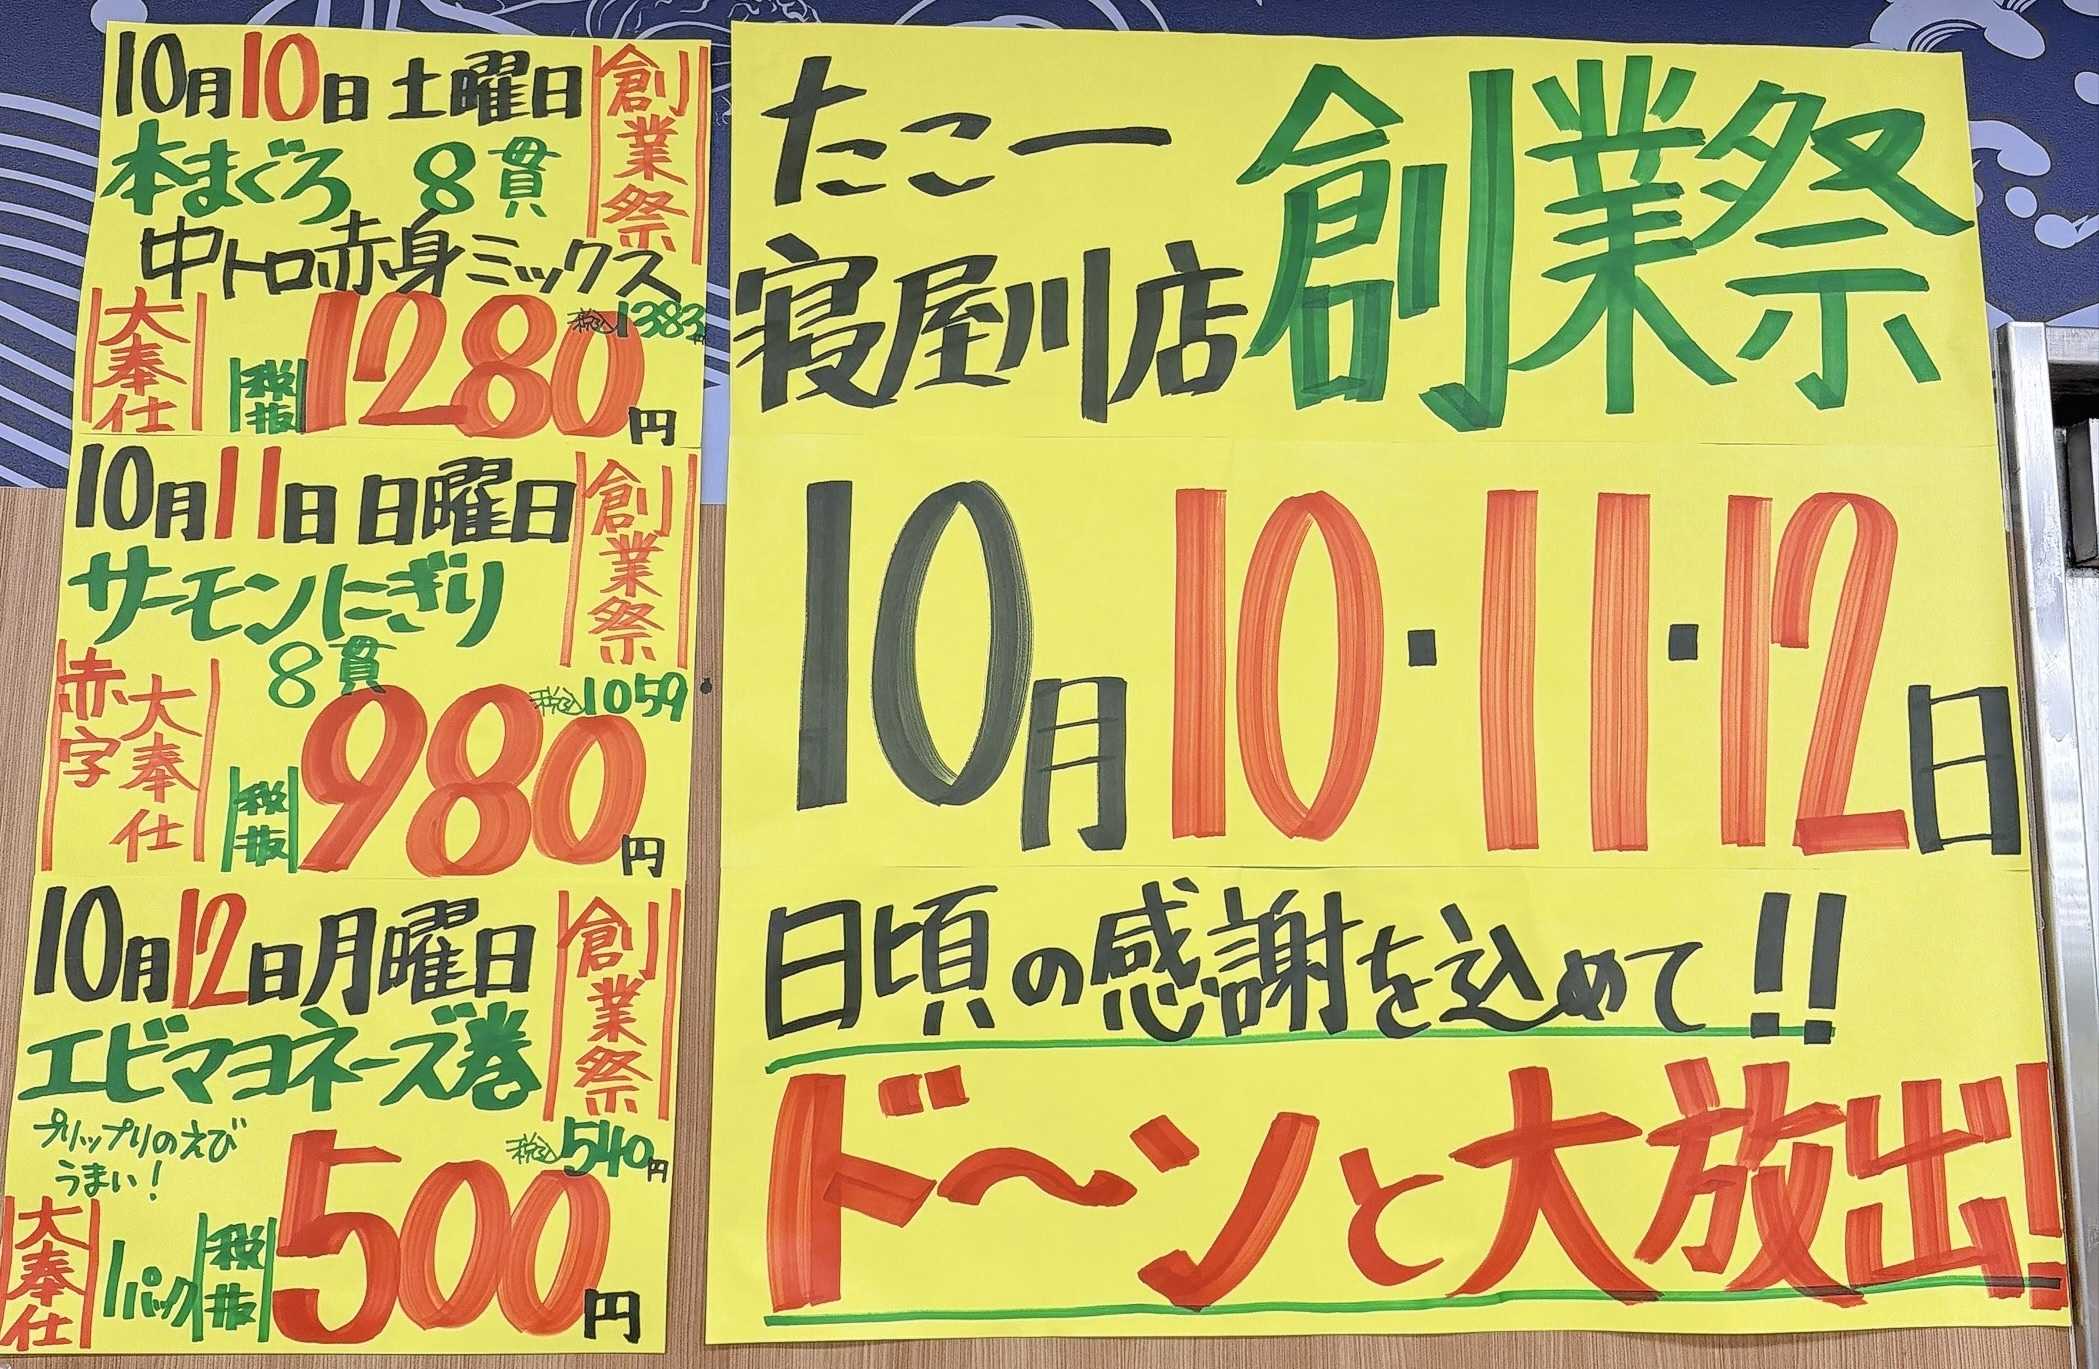 10月10日 土曜日
創業祭
本まぐろ 8貫
中トロ赤身ミックス
大奉仕
税抜 1280円
税込 1383円
10月11日 日曜日
創業祭
サーモンにぎり
8貫
赤字
大奉仕
税抜 980円
税込 1059
10月12日 月曜日
創業祭
エビマヨネーズ巻
プリップリのえび
うまい!
大奉仕
1パック
税抜 500円
税込 540円
たこ一
寝屋川店
創業祭
10月10・11・12日
日頃の感謝を込めて!!
ド〜ンと大放出!